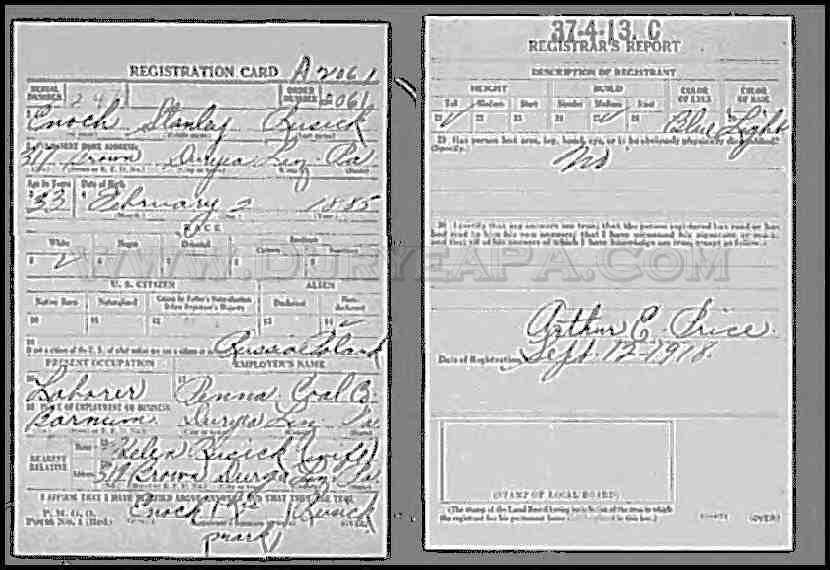 REGISTRATION CARD A 2061
SERIAL NUMBER 247 ORDER NUMBER 2061
Enoch Stanley Rusick
PERMANENT HOME ADDRESS:
319 Brown Duryea Luz Pa
Age in Years Date of Birth
33 February 2 1885
RACE
White Negro Oriental Indian
Citizen
U. S. CITIZEN ALIEN
Native Born Naturalized Citizen by Father's Naturalization Before Registrant's Majority Declarant Non-declarant
10 11 12 13 14
If not a citizen of the U. S. of what nation are you a citizen or Russia Poland
PRESENT OCCUPATION EMPLOYER'S NAME
Laborer Penna Coal Co.
PLACE OF EMPLOYMENT OR BUSINESS
Barnum Duryea Luz Pa
NEAREST RELATIVE
Name Helen Rusick (wife)
Address 319 Brown Duryea Luz Pa
I AFFIRM THAT I HAVE VERIFIED ABOVE ANSWERS AND THAT THEY ARE TRUE
P. M. G. O.
Form No. 1 (Red)
Enoch Rusick
(OVER)
mark
37-4-13. C
REGISTRAR'S REPORT
DESCRIPTION OF REGISTRANT
HEIGHT BUILD COLOR OF EYES COLOR OF HAIR
Tall Medium Short Slender Medium Stout
21 22 23 24 25 26 Blue Light
29 Has person lost arm, leg, hand, eye, or is he obviously physically disqualified?
(Specify.) No
30 I certify that my answers are true; that the person registered has read or has had read to him his own answers; that I have witnessed his signature or mark, and that all of his answers of which I have knowledge are true, except as follows:
Arthur E. Price
Date of Registration Sept. 12-1918
(STAMP OF LOCAL BOARD)
(The stamp of the Local Board having jurisdiction of the area in which the registrant has his permanent home shall be placed in this box.)
(OVER)
WWW.DURYEAPA.COM